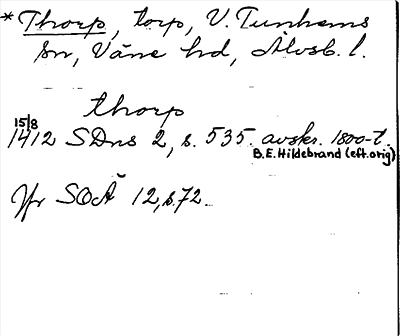 * Thorp, torp, V. Tunhems
sn, Väne hd, Älvsb. l.
thorp
15/8
1412 SDns 2, s. 535. avskr. 1800-t.
B.E. Hildebrand (eft. orig)
Jfr SOÄ 12, s. 72.